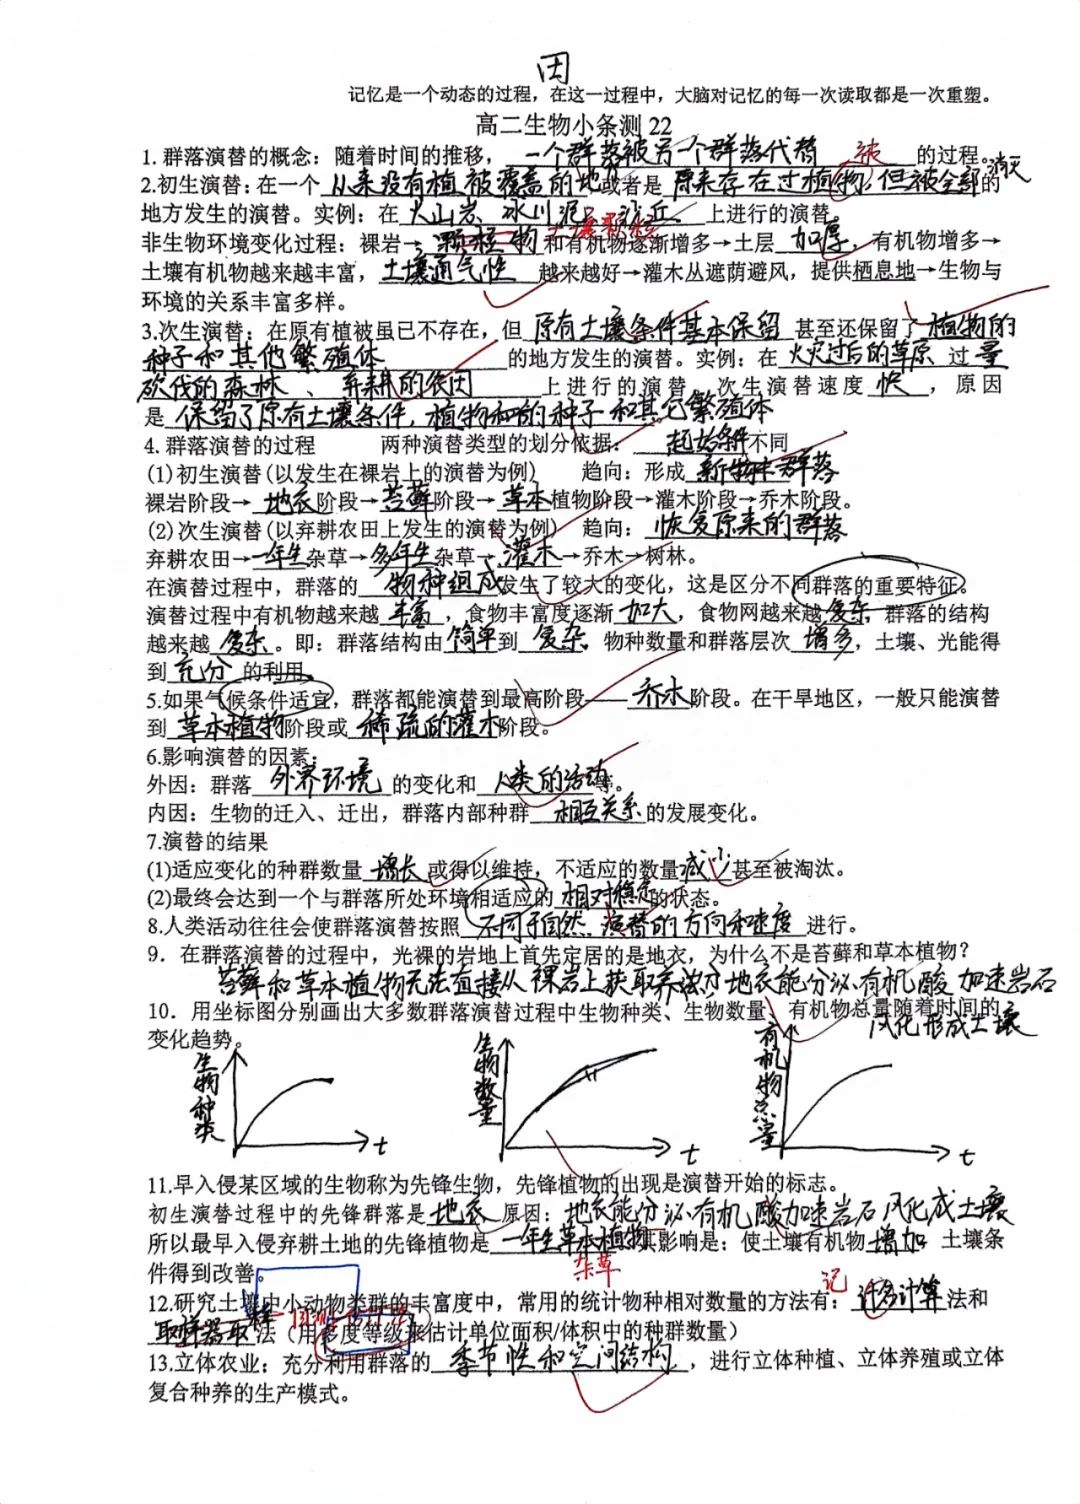 田
记忆是一个动态的过程，在这一过程中，大脑对记忆的每一次读取都是一次重塑。
高二生物小条测 22
1. 群落演替的概念：随着时间的推移，一个群落被另一个群落代替 被 的过程。
2.初生演替：在一个 从来没有植被覆盖的地方 或者是 原来存在过植物,但被全部消灭 的
地方发生的演替。实例：在 火山岩、冰川泥、沙丘 上进行的演替。
土壤颗粒
非生物环境变化过程：裸岩→ 颗植物 和有机物逐渐增多→土层 加厚，有机物增多→
土壤有机物越来越丰富，土壤通气性 越来越好→灌木丛遮荫避风，提供栖息地→生物与
环境的关系丰富多样。
3.次生演替：在原有植被虽已不存在，但 原有土壤条件基本保留 甚至还保留了 植物的
种子和其他繁殖体 的地方发生的演替。实例：在 火灾过后的草原 过量
砍伐的森林、弃耕的农田 上进行的演替 次生演替速度 快 ，原因
是 保留了原有土壤条件，植物的种子和其它繁殖体
4. 群落演替的过程 两种演替类型的划分依据： 起始条件 不同
(1)初生演替(以发生在裸岩上的演替为例) 趋向：形成 新物群落
裸岩阶段→ 地衣 阶段→ 苔藓 阶段→ 草本 植物阶段→灌木阶段→乔木阶段。
(2)次生演替(以弃耕农田上发生的演替为例) 趋向： 恢复原来的群落
弃耕农田→ 一年生 杂草→ 多年生 杂草→ 灌木 →乔木→树林。
在演替过程中，群落的 物种组成 发生了较大的变化，这是区分不同群落的重要特征。
演替过程中有机物越来越 丰富 ，食物丰富度逐渐 加大 ，食物网越来越 复杂 群落的结构
越来越 复杂 。即：群落结构由 简单 到 复杂 。物种数量和群落层次 增多 ，土壤、光能得
到 充分 的利用。
5.如果气候条件适宜，群落都能演替到最高阶段—— 乔木 阶段。在干旱地区，一般只能演替
到 草本植物 阶段或 稀疏的灌木 阶段。
6.影响演替的因素：
外因：群落 外界环境 的变化和 人类的活动 等。
内因：生物的迁入、迁出，群落内部种群 相互关系 的发展变化。
7.演替的结果
(1)适应变化的种群数量 增长 或得以维持，不适应的数量 减少 甚至被淘汰。
(2)最终会达到一个与群落所处环境相适应的 相对稳定 的状态。
8.人类活动往往会使群落演替按照 不同于自然演替的方向和速度 进行。
9．在群落演替的过程中，光裸的岩地上首先定居的是地衣，为什么不是苔藓和草本植物？
苔藓和草本植物无法直接从裸岩上获取养分 地衣能分泌有机酸 加速岩石
风化形成土壤
10．用坐标图分别画出大多数群落演替过程中生物种类、生物数量、有机物总量随着时间的
变化趋势。
生物种类 t
生物数量 t
有机物总量 t
11.早入侵某区域的生物称为先锋生物，先锋植物的出现是演替开始的标志。
初生演替过程中的先锋群落是 地衣 原因：地衣能分泌有机酸加速岩石风化成土壤
所以最早入侵弃耕土地的先锋植物是 一年生草本植物 其影响是：使土壤有机物 增加 土壤条
杂草
件得到改善。
12.研究土壤中小动物类群的丰富度中，常用的统计物种相对数量的方法有： 许名计算 法和
记
取样器取 法（用多度等级来估计单位面积/体积中的种群数量）
13.立体农业：充分利用群落的 季节性和空间结构 ，进行立体种植、立体养殖或立体
复合种养的生产模式。